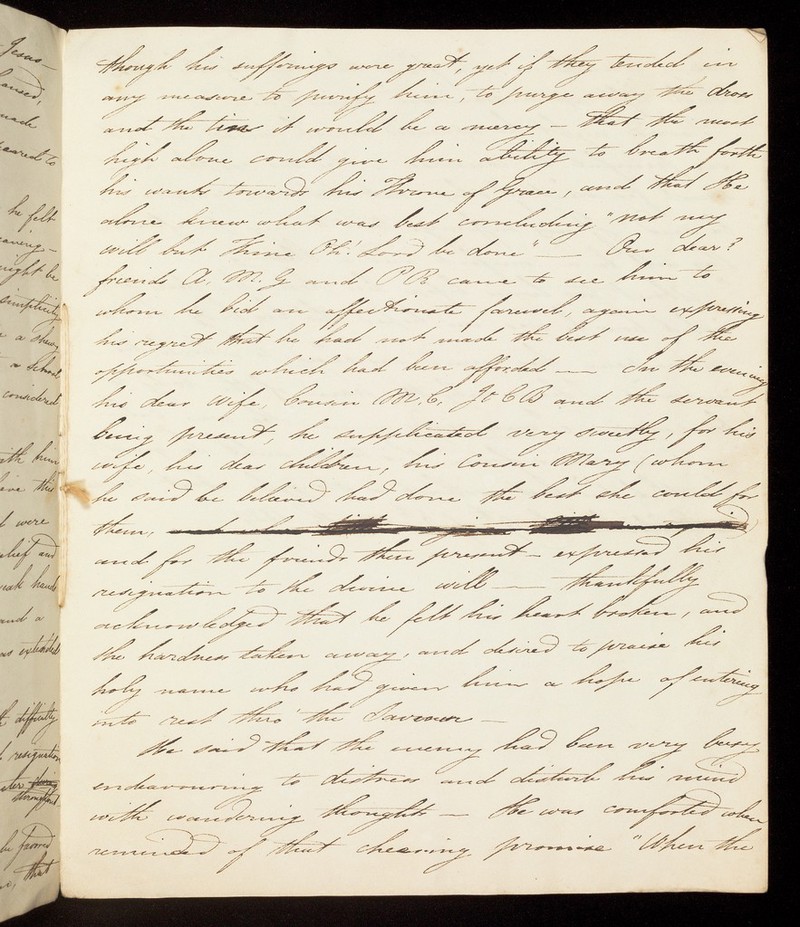 though his sufferings were great, yet if they tended in
any measure to purify him, to purge away the dross
and the tin it would be a mercy – that the most
high alone could give him ability to breath forth
his wants towards his Throne of Grace, and that He
alone knew what was best concluding "not my
will but Thine Oh! Lord be done" — Our dear
friends A. M. G and P R came to see him to
whom he bid an affectionate farewel, again expressing
his regret that he had not made the best use of the
opportunities which had been afforded — In the evening
his dear Wife, Cousin M. C, J & C B and the servant
being present, he supplicated very sweetly, for his
wife, his dear children, his Cousin Mary (whom
he said he believed had done the best she could for
them,
and for the friends then present – expressed his
resignation to the divine will — thankfully
acknowledged that he felt his heart broken, and
the hardness taken away, and desired to praise his
holy name who had given him a hope of entering
into rest thro' the Saviour –
He said that the enemy had been very busy
endeavouring to distress and disturb his mind
with wandering thoughts – He was comforted when
reminded of that cheering promise "When the
Jesus –
made
he felt
might be
simplicity
a School
considered
with him
were
and a
difficulty
resignation
throughout
that